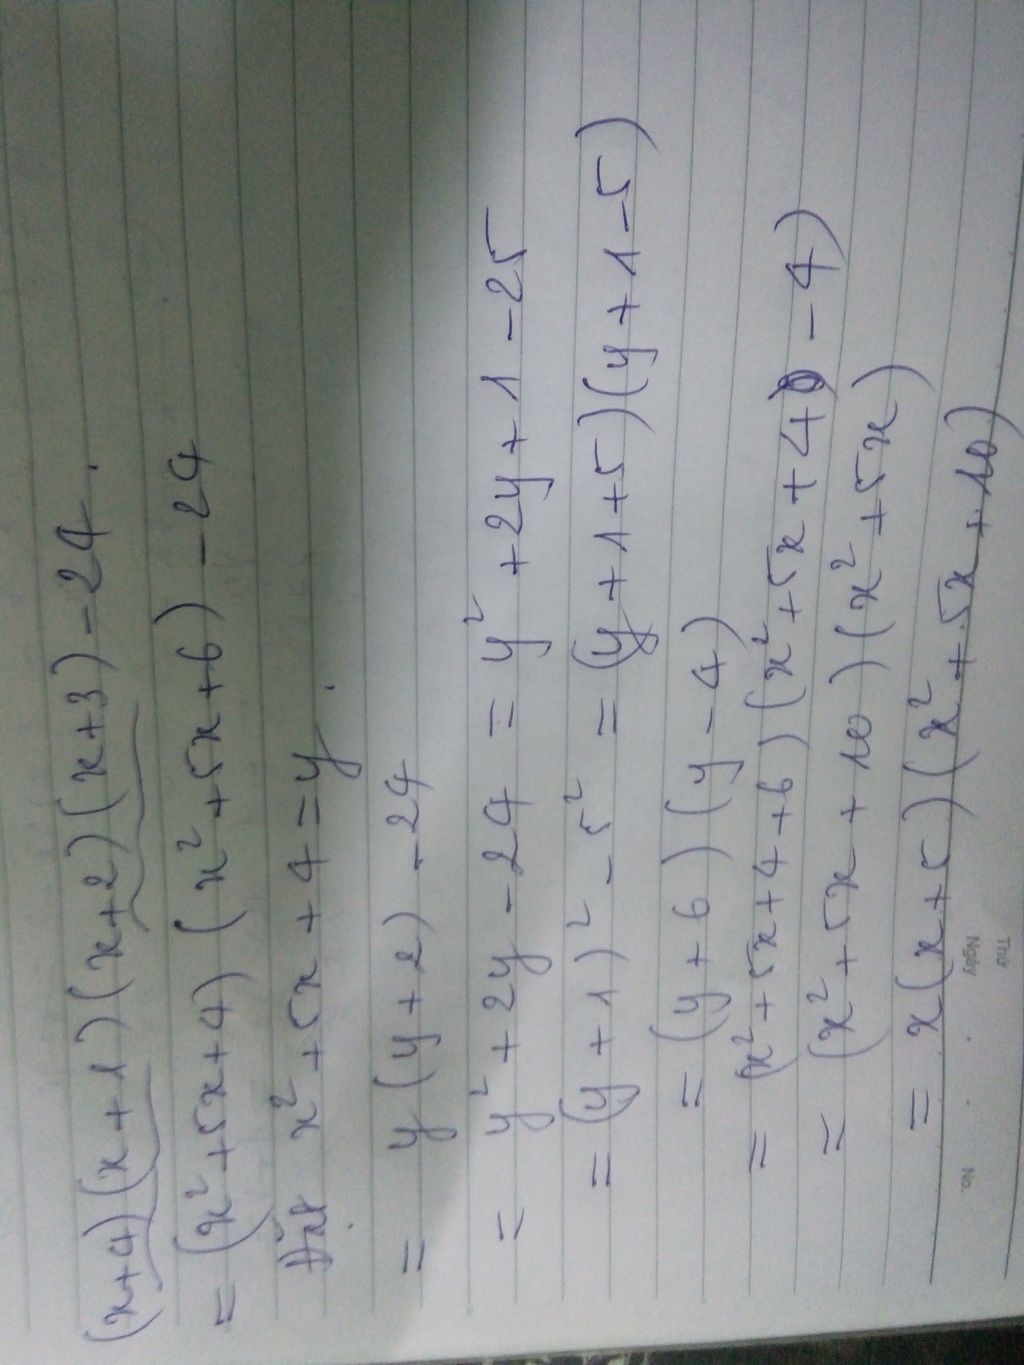 (x+4)(x+1)(x+2)(x+3)-24.
= (x²+5x+4)(x²+5x+6)-24
Đặt x²+5x+4=y.
= y(y+2)-24
= y²+2y-24 = y²+2y+1-25
= (y+1)²-5² = (y+1+5)(y+1-5)
= (y+6)(y-4)
= (x²+5x+4+6)(x²+5x+4-4)
= (x²+5x+10)(x²+5x)
= x(x+5)(x²+5x+10)
Thứ
Ngày
No.